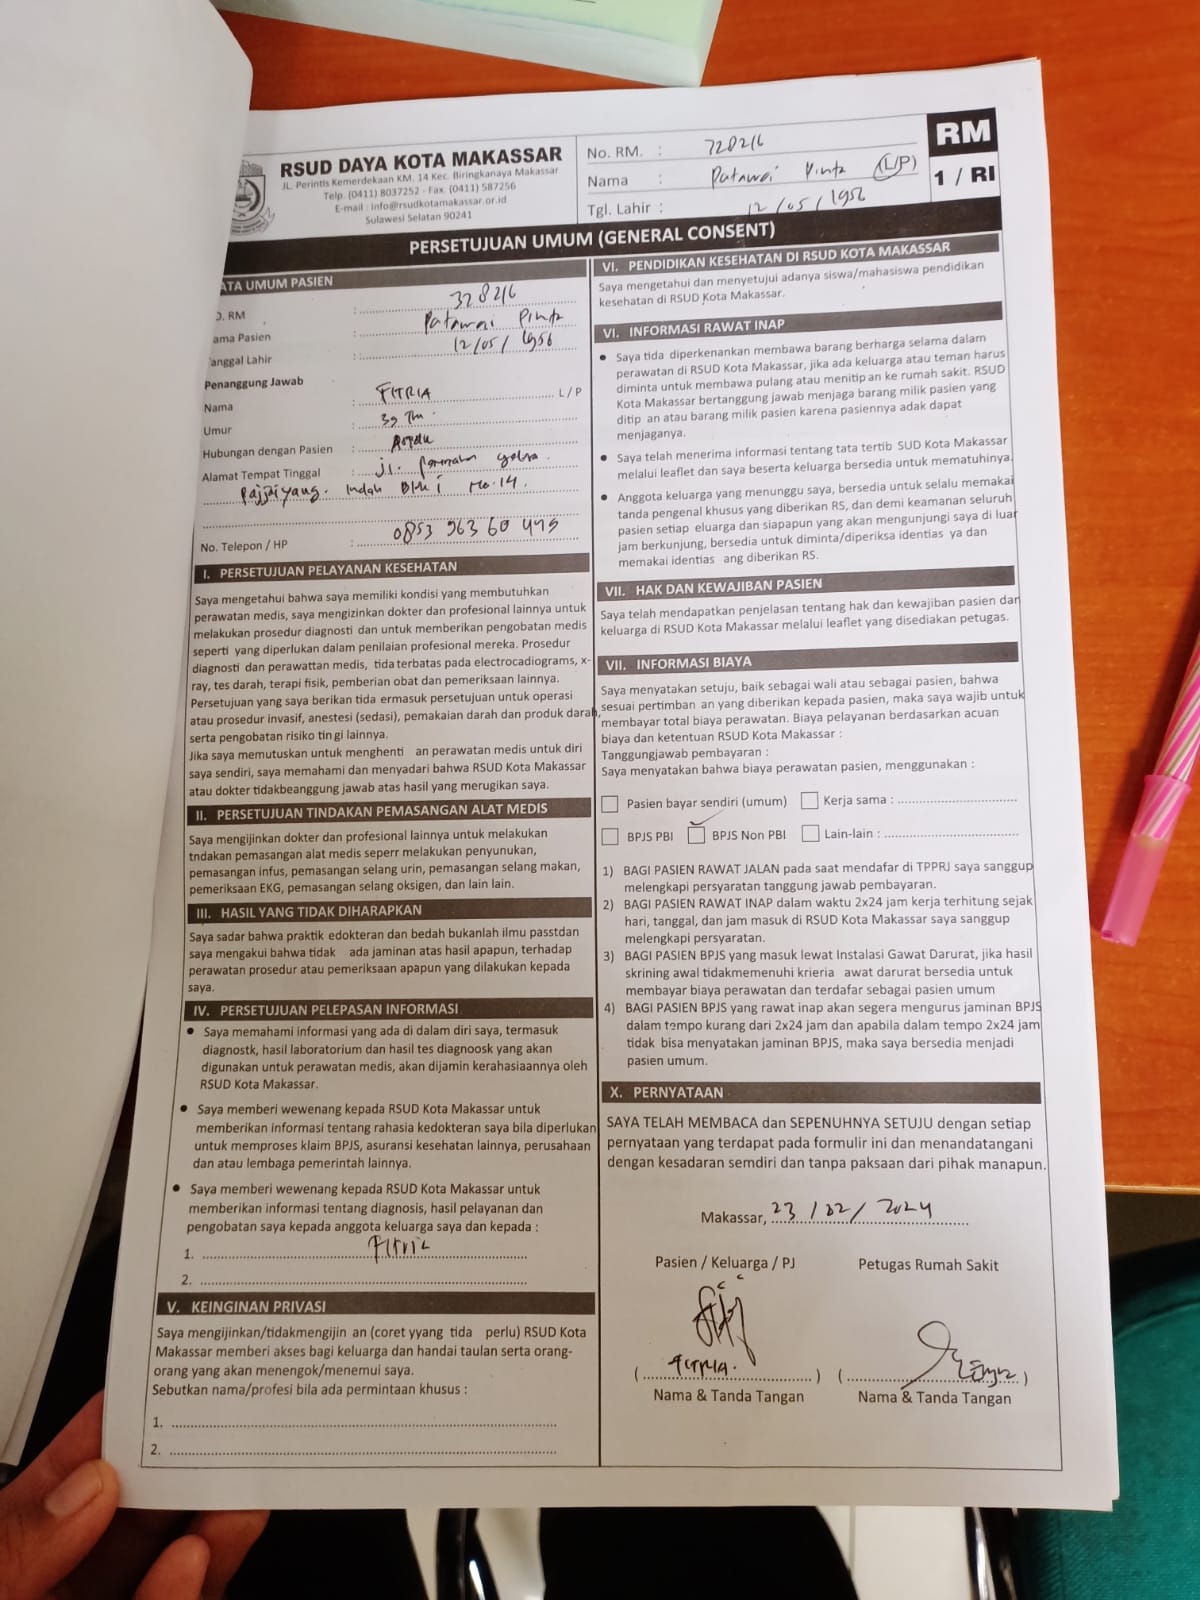 RSUD DAYA KOTA MAKASSAR
JL. Perintis Kemerdekaan KM. 14 Kec. Biringkanaya Makassar
Telp. (0411) 8037252 - Fax. (0411) 587256
E-mail : info@rsudkotamakassar.or.id
Sulawesi Selatan 90241
No. RM. :
Nama : (L/P)
Tgl. Lahir : 12/05/1956
RM
1 / RI
PERSETUJUAN UMUM (GENERAL CONSENT)
ATA UMUM PASIEN
O. RM : 328216
ama Pasien :
anggal Lahir : 12/05/1956
Penanggung Jawab
Nama : FITRIA L/P
Umur :
Hubungan dengan Pasien :
Alamat Tempat Tinggal : Jl.
Indah No.14.
No. Telepon / HP :
I. PERSETUJUAN PELAYANAN KESEHATAN
Saya mengetahui bahwa saya memiliki kondisi yang membutuhkan
perawatan medis, saya mengizinkan dokter dan profesional lainnya untuk
melakukan prosedur diagnosti dan untuk memberikan pengobatan medis
seperti yang diperlukan dalam penilaian profesional mereka. Prosedur
diagnosti dan perawattan medis, tida terbatas pada electrocadiograms, x-
ray, tes darah, terapi fisik, pemberian obat dan pemeriksaan lainnya.
Persetujuan yang saya berikan tida ermasuk persetujuan untuk operasi
atau prosedur invasif, anestesi (sedasi), pemakaian darah dan produk darah,
serta pengobatan risiko tin gi lainnya.
Jika saya memutuskan untuk menghenti an perawatan medis untuk diri
saya sendiri, saya memahami dan menyadari bahwa RSUD Kota Makassar
atau dokter tidakbeanggung jawab atas hasil yang merugikan saya.
II. PERSETUJUAN TINDAKAN PEMASANGAN ALAT MEDIS
Saya mengijinkan dokter dan profesional lainnya untuk melakukan
tndakan pemasangan alat medis seperr melakukan penyunukan,
pemasangan infus, pemasangan selang urin, pemasangan selang makan,
pemeriksaan EKG, pemasangan selang oksigen, dan lain lain.
III. HASIL YANG TIDAK DIHARAPKAN
Saya sadar bahwa praktik edokteran dan bedah bukanlah ilmu passtdan
saya mengakui bahwa tidak ada jaminan atas hasil apapun, terhadap
perawatan prosedur atau pemeriksaan apapun yang dilakukan kepada
saya.
IV. PERSETUJUAN PELEPASAN INFORMASI
• Saya memahami informasi yang ada di dalam diri saya, termasuk
diagnostk, hasil laboratorium dan hasil tes diagnoosk yang akan
digunakan untuk perawatan medis, akan dijamin kerahasiaannya oleh
RSUD Kota Makassar.
• Saya memberi wewenang kepada RSUD Kota Makassar untuk
memberikan informasi tentang rahasia kedokteran saya bila diperlukan
untuk memproses klaim BPJS, asuransi kesehatan lainnya, perusahaan
dan atau lembaga pemerintah lainnya.
• Saya memberi wewenang kepada RSUD Kota Makassar untuk
memberikan informasi tentang diagnosis, hasil pelayanan dan
pengobatan saya kepada anggota keluarga saya dan kepada :
1.
2.
V. KEINGINAN PRIVASI
Saya mengijinkan/tidakmengijin an (coret yyang tida perlu) RSUD Kota
Makassar memberi akses bagi keluarga dan handai taulan serta orang-
orang yang akan menengok/menemui saya.
Sebutkan nama/profesi bila ada permintaan khusus :
1.
2.
VI. PENDIDIKAN KESEHATAN DI RSUD KOTA MAKASSAR
Saya mengetahui dan menyetujui adanya siswa/mahasiswa pendidikan
kesehatan di RSUD Kota Makassar.
VI. INFORMASI RAWAT INAP
• Saya tida diperkenankan membawa barang berharga selama dalam
perawatan di RSUD Kota Makassar, jika ada keluarga atau teman harus
diminta untuk membawa pulang atau menitip an ke rumah sakit. RSUD
Kota Makassar bertanggung jawab menjaga barang milik pasien yang
ditip an atau barang milik pasien karena pasiennya adak dapat
menjaganya.
• Saya telah menerima informasi tentang tata tertib SUD Kota Makassar
melalui leaflet dan saya beserta keluarga bersedia untuk mematuhinya.
• Anggota keluarga yang menunggu saya, bersedia untuk selalu memakai
tanda pengenal khusus yang diberikan RS, dan demi keamanan seluruh
pasien setiap eluarga dan siapapun yang akan mengunjungi saya di luar
jam berkunjung, bersedia untuk diminta/diperiksa identias ya dan
memakai identias ang diberikan RS.
VII. HAK DAN KEWAJIBAN PASIEN
Saya telah mendapatkan penjelasan tentang hak dan kewajiban pasien dan
keluarga di RSUD Kota Makassar melalui leaflet yang disediakan petugas.
VII. INFORMASI BIAYA
Saya menyatakan setuju, baik sebagai wali atau sebagai pasien, bahwa
sesuai pertimban an yang diberikan kepada pasien, maka saya wajib untuk
membayar total biaya perawatan. Biaya pelayanan berdasarkan acuan
biaya dan ketentuan RSUD Kota Makassar :
Tanggungjawab pembayaran :
Saya menyatakan bahwa biaya perawatan pasien, menggunakan :
Pasien bayar sendiri (umum) Kerja sama :
BPJS PBI BPJS Non PBI Lain-lain :
1) BAGI PASIEN RAWAT JALAN pada saat mendafar di TPPRJ saya sanggup
melengkapi persyaratan tanggung jawab pembayaran.
2) BAGI PASIEN RAWAT INAP dalam waktu 2x24 jam kerja terhitung sejak
hari, tanggal, dan jam masuk di RSUD Kota Makassar saya sanggup
melengkapi persyaratan.
3) BAGI PASIEN BPJS yang masuk lewat Instalasi Gawat Darurat, jika hasil
skrining awal tidakmemenuhi krieria awat darurat bersedia untuk
membayar biaya perawatan dan terdafar sebagai pasien umum
4) BAGI PASIEN BPJS yang rawat inap akan segera mengurus jaminan BPJS
dalam tempo kurang dari 2x24 jam dan apabila dalam tempo 2x24 jam
tidak bisa menyatakan jaminan BPJS, maka saya bersedia menjadi
pasien umum.
X. PERNYATAAN
SAYA TELAH MEMBACA dan SEPENUHNYA SETUJU dengan setiap
pernyataan yang terdapat pada formulir ini dan menandatangani
dengan kesadaran semdiri dan tanpa paksaan dari pihak manapun.
Makassar, 23/02/2024
Pasien / Keluarga / PJ Petugas Rumah Sakit
( FITRIA. ) ( )
Nama & Tanda Tangan Nama & Tanda Tangan